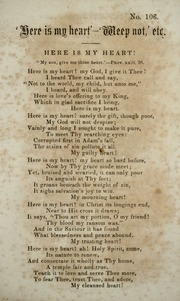 No. 106.
'Here is my heart'—'Weep not,' etc.
HERE IS MY HEART!
"My son, give me thine heart."—Prov. xxiii. 26.
Here is my heart! my God, I give it Thee!
I heard Thee call and say,
"Not to the world, my child, but unto me,"
I heard, and will obey.
Here is love's offering to my King,
Which in glad sacrifice I bring,
Here is my heart.
Here is my heart! surely the gift, though poor,
My God will not despise;
Vainly and long I sought to make it pure,
To meet Thy searching eyes;
Corrupted first in Adam's fall,
The stains of sin pollute it all,
My guilty heart!
Here is my heart! my heart so hard before,
Now by Thy grace made meet;
Yet, bruised and wearied, it can only pour
Its anguish at Thy feet;
It groans beneath the weight of sin,
It sighs salvation's joy to win.
My mourning heart!
Here is my heart! in Christ its longings end,
Near to His cross it draws;
It says, "Thou art my portion, O my friend!
Thy blood my ransom was,"
And in the Saviour it has found
What blessedness and peace abound.
My trusting heart!
Here is my heart! ah! Holy Spirit, come,
Its nature to renew,
And consecrate it wholly as Thy home,
A temple fair and true.
Teach it to love and serve Thee more,
To fear Thee, trust Thee, and adore,
My cleansed heart!